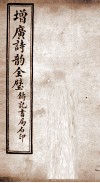 增廣詩韵全璧
錦記書局石印